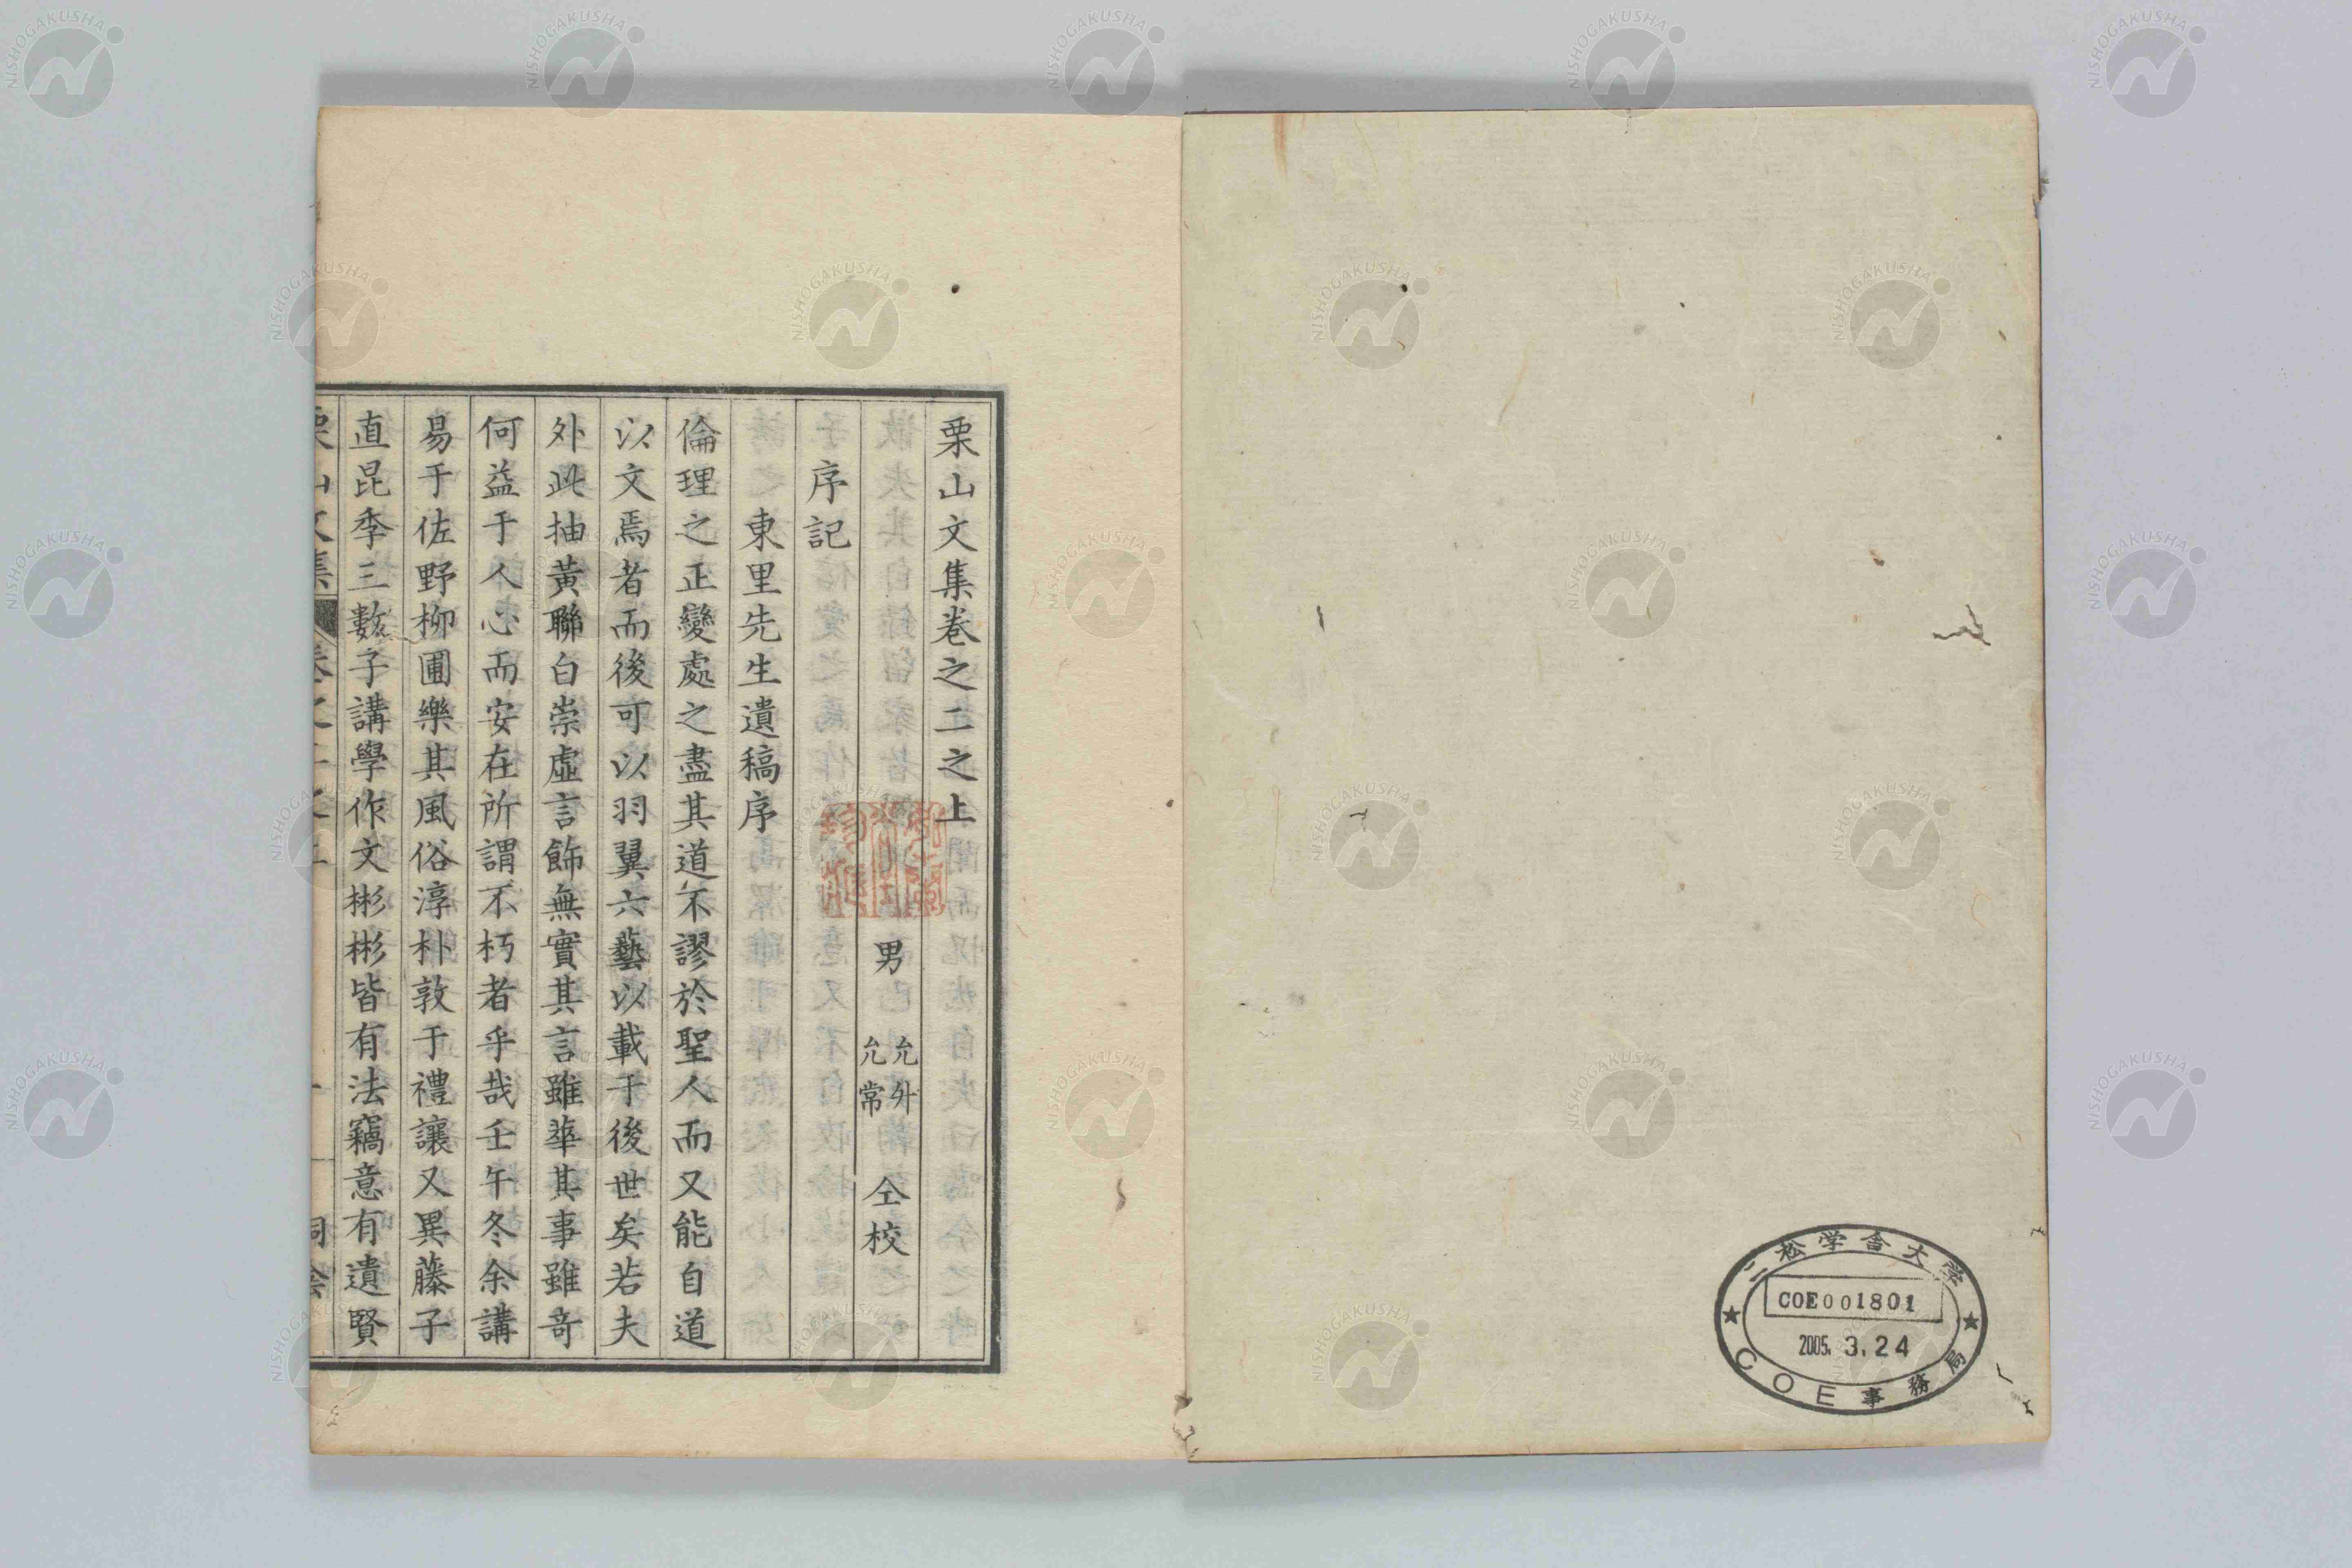 栗山文集卷之二之上
男 允升 允常 仝校
序記
東里先生遺稿序
倫理之正變處之盡其道不謬於聖人而又能自道
以文焉者而後可以羽翼六藝以載于後世矣若夫
外此抽黃聯白崇虛言飾無實其言雖華其事雖奇
何益于人心而安在所謂不朽者乎哉壬午冬余講
易于佐野柳圃樂其風俗淳朴敦于禮讓又異藤子
直昆季三數子講學作文彬彬皆有法竊意有遺賢
栗山文集 卷之二之上
二松学舎大学
COE001801
2005. 3. 24
COE事務局
NISHOGAKUSHA